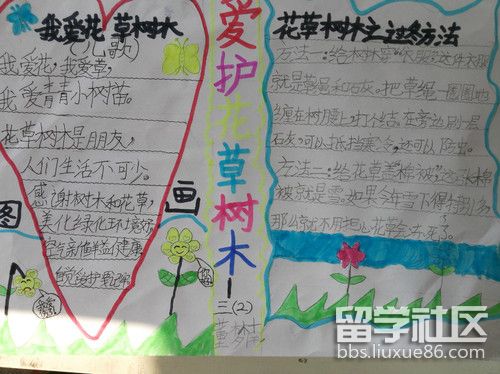 我爱花草树木
(儿歌)
我爱花，我爱草，
我爱青青小树苗。
花草树木是朋友，
人们生活不可少。
感谢树木和花草，
美化绿化环境好。
空气新鲜益健康
图
画
爱护花草树木
三(2)
花草树木之过冬方法
方法一：给树木穿"衣服"这件衣服
就是草绳和石灰。把草绳一圈圈地
缠在树腰上，打个结，在旁边刷一层
石灰，可以抵挡寒冷，还可以防虫。
方法二：给花草盖"棉被"这张棉
被就是雪。如果今年雪下得特别多，
那么就不用担心花草会冻死了。
留学社区
bbs.liuxue86.com